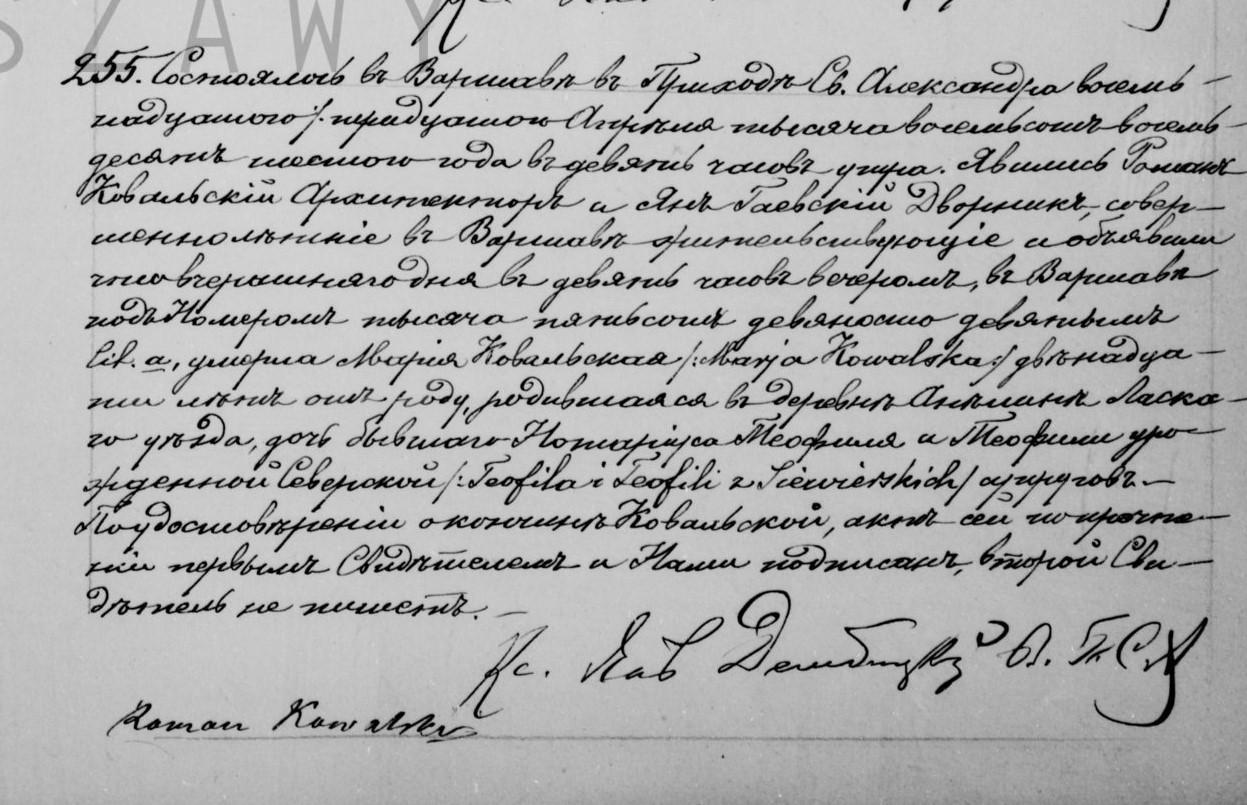 SZAWY
255. Состоялось въ Варшавѣ въ Приходѣ Св. Александра восем-
надцатого /: тридцатого Апрѣля тысяча восемьсотъ восемь-
десятъ шестого года въ девять часовъ утра. Явились Романъ
Ковальскій Архитекторъ и Янъ Гаевскій Дворникъ, совер-
шеннолѣтніе въ Варшавѣ жительствующіе и объявили
что вчерашняго дня въ девять часовъ вечеромъ, въ Варшавѣ
подъ Номеромъ тысяча пятьсотъ девяносто девятымъ
lit. a, умерла Марія Ковальская /: Marja Kowalska :/ двѣнадца-
ти лѣтъ отъ роду, родившаяся въ деревнѣ Анѣлинѣ Ласка-
го уѣзда, дочь бывшаго Нотаріуса Теофиля и Теофили уро-
жденной Северской /: Teofila i Teofili z Siewierskich / супруговъ. —
По удостовѣреніи о кончинѣ Ковальской, актъ сей по прочте-
ніи первымъ Свидѣтелемъ и Нами подписанъ, второй Сви-
дѣтель не пишетъ. —
Кс. Дембицкій П. С. А
Roman Kowalski